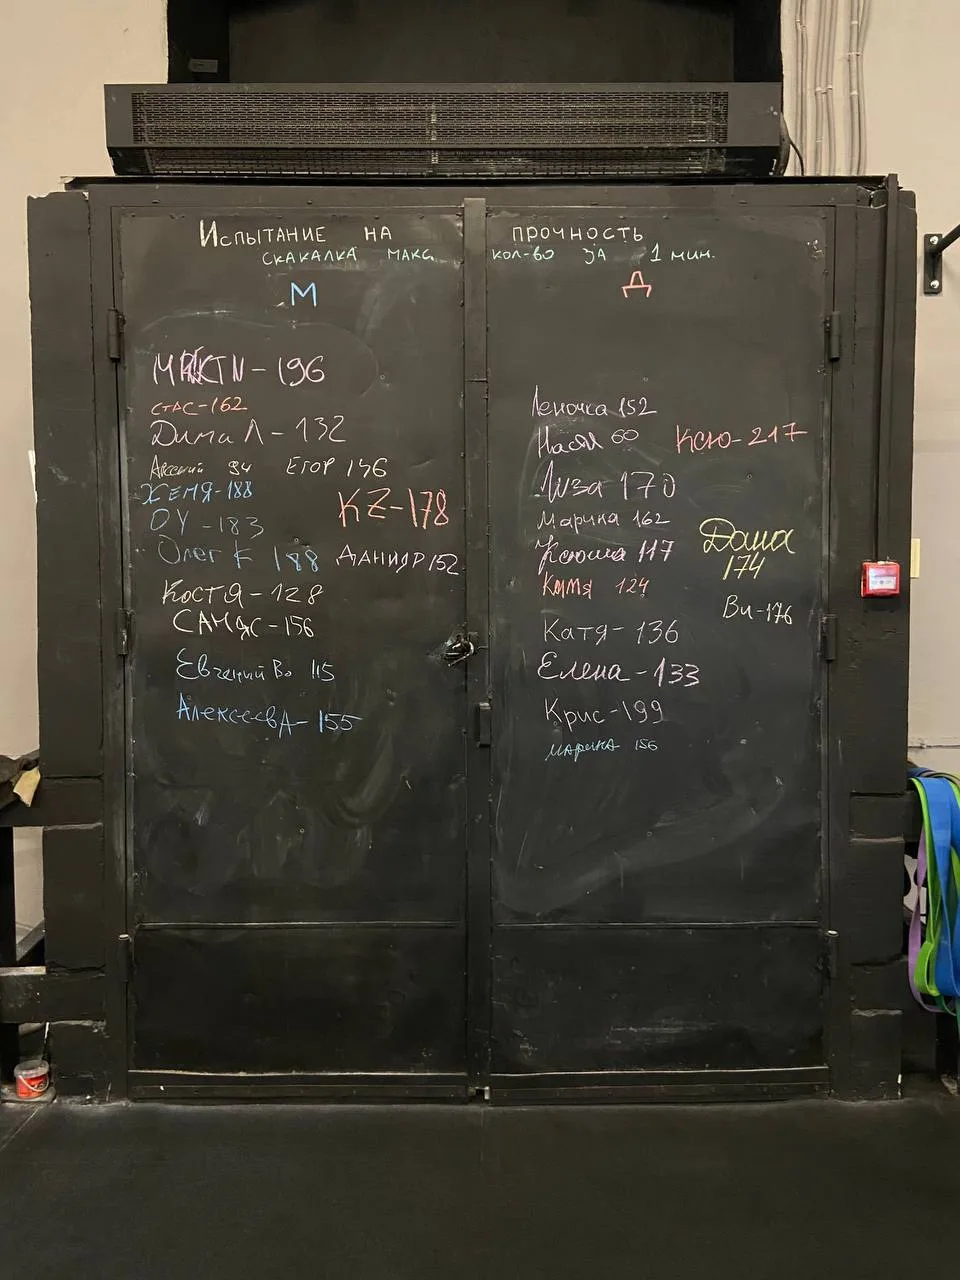 Испытание на прочность
скакалка макс. кол-во за 1 мин.
М
Д
- 196
стас-162
Дима Л - 132
Арсений 94
Егор 146
ЖЕМЯ-188
KZ-178
ОУ - 183
Олег К 188
Данияр 152
Костя - 128
- 156
Евгений Во 115
Алексеев А - 155
Леночка 152
Настя 60
Ксю-217
Лиза 170
Марина 162
Даша
174
Ксюша 117
Катя 124
Ви-176
Катя - 136
Елена - 133
Крис - 199
марина 156